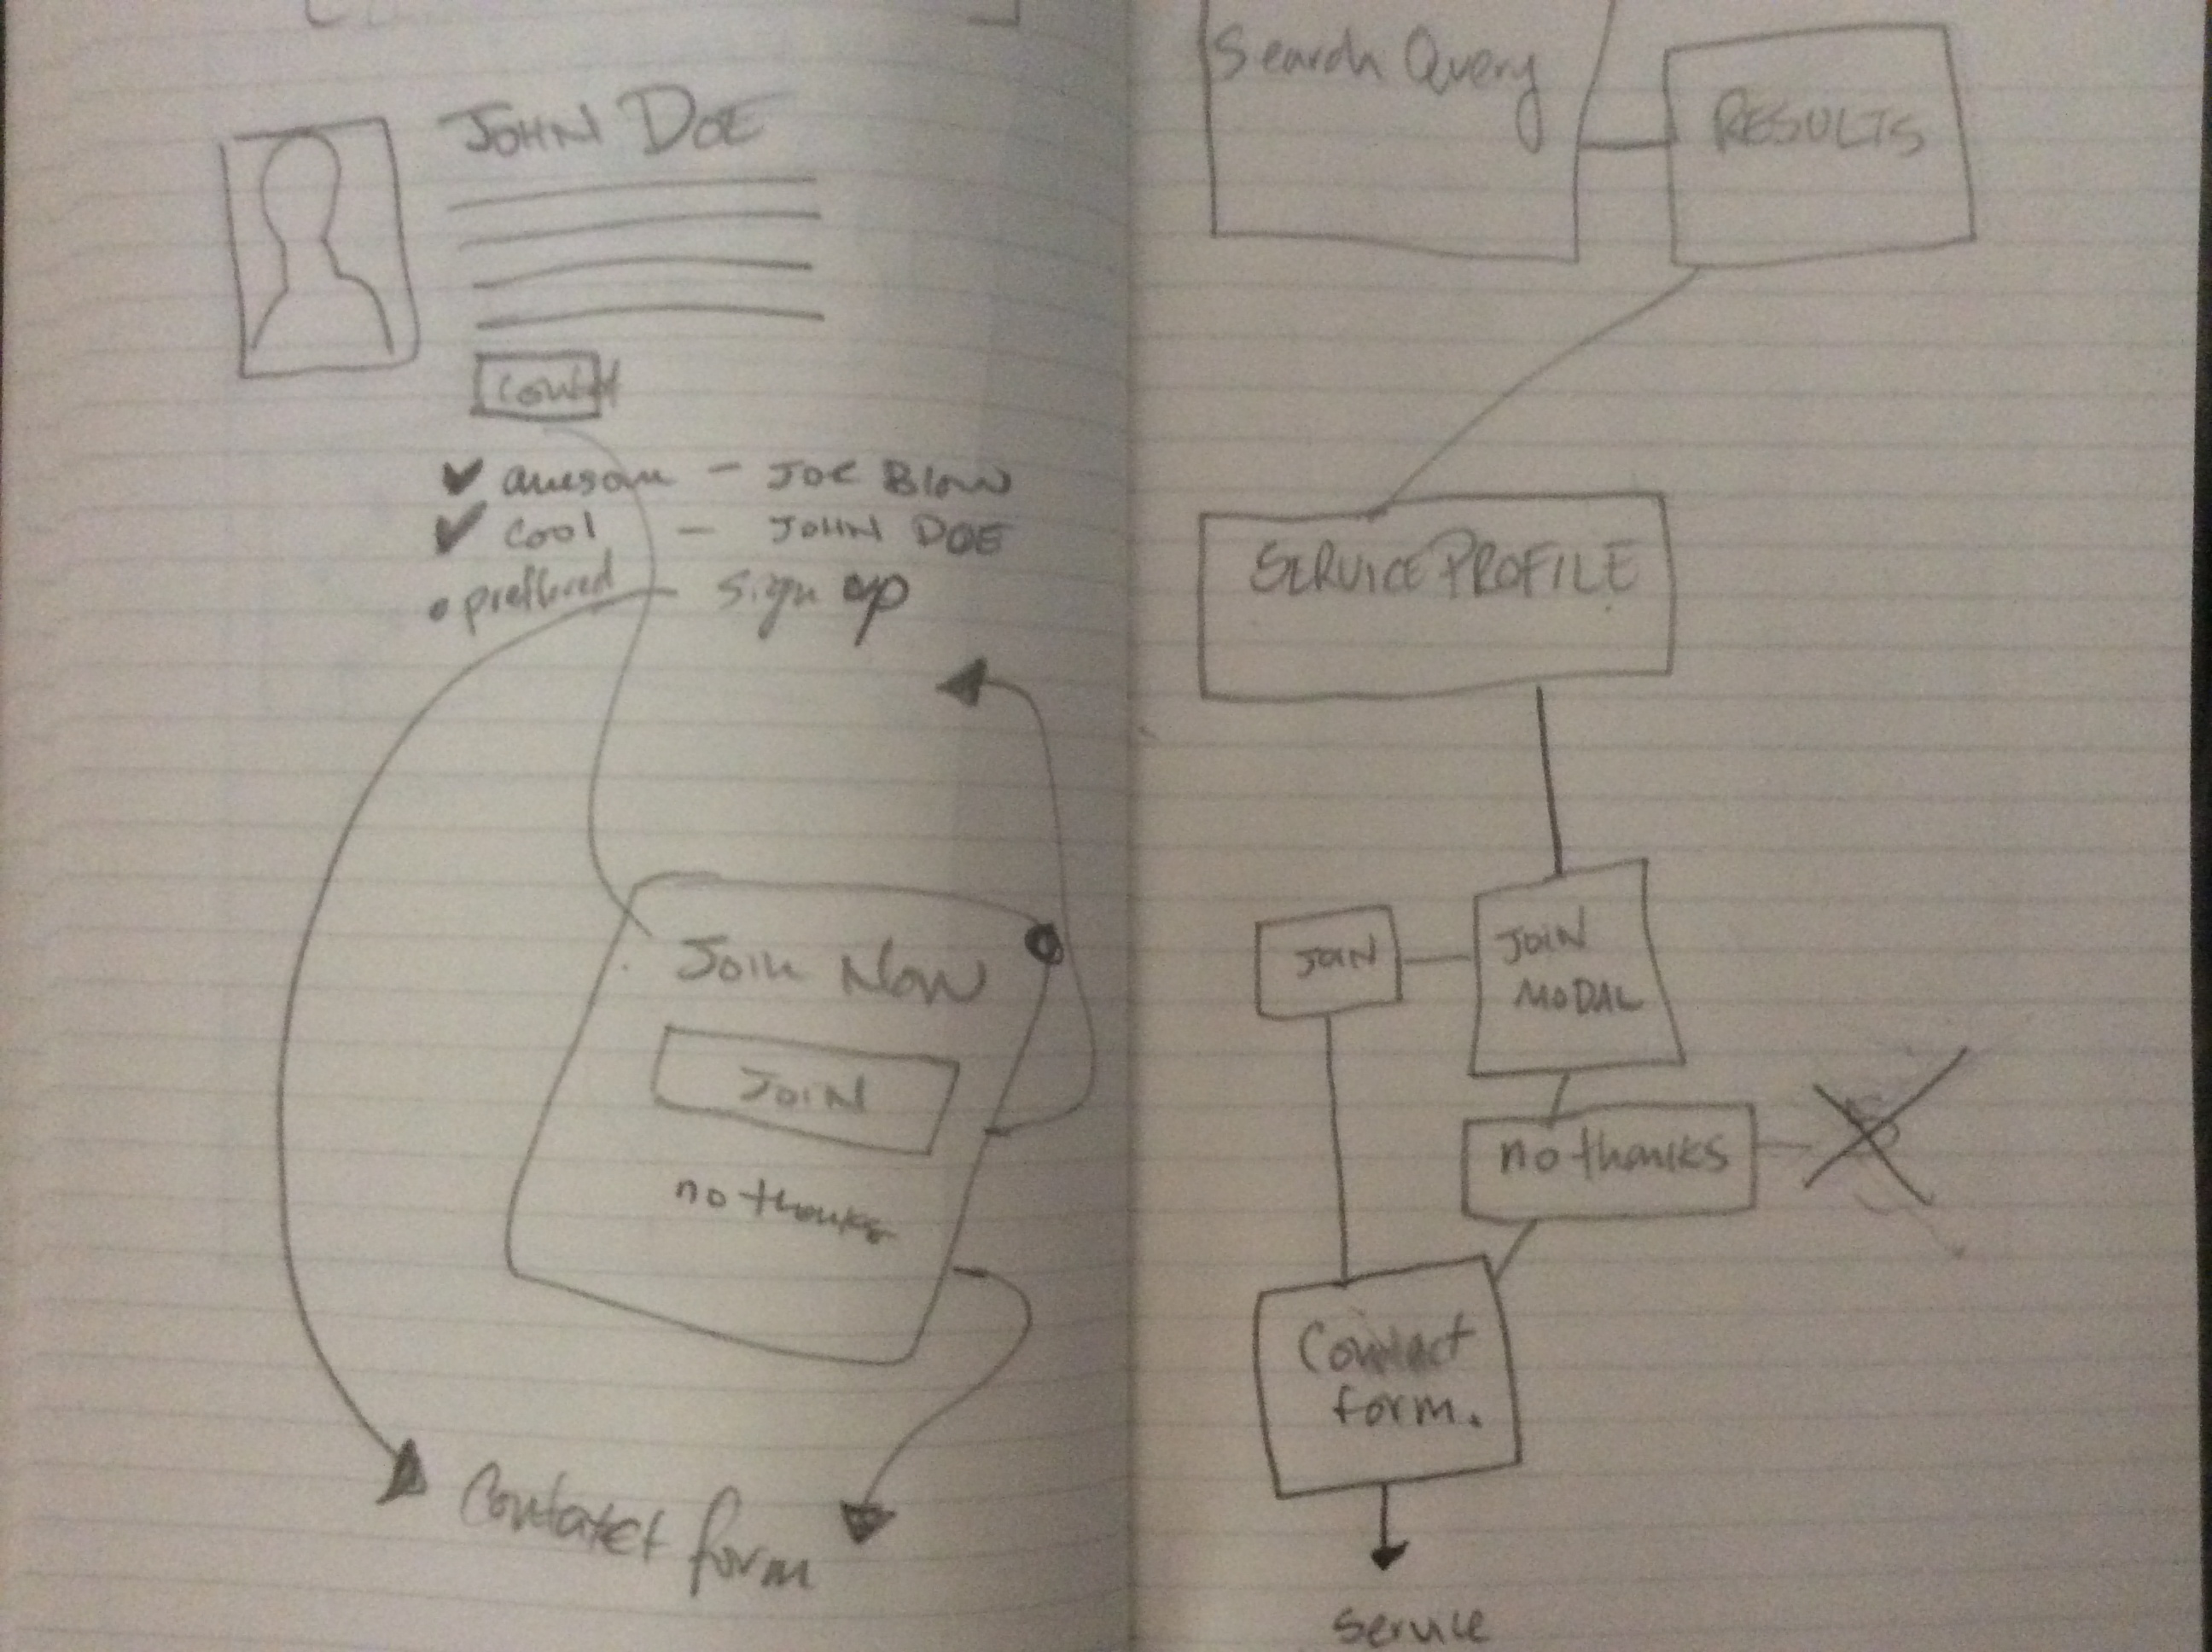 JOHN DOE
✔ awesome - JOE Blow
✔ Cool - JOHN DOE
- sign up
Join Now
JOIN
no thanks
Contact form
Search Query
RESULTS
SERVICE PROFILE
JOIN
MODAL
JOIN
no thanks
Contact
form.
Service